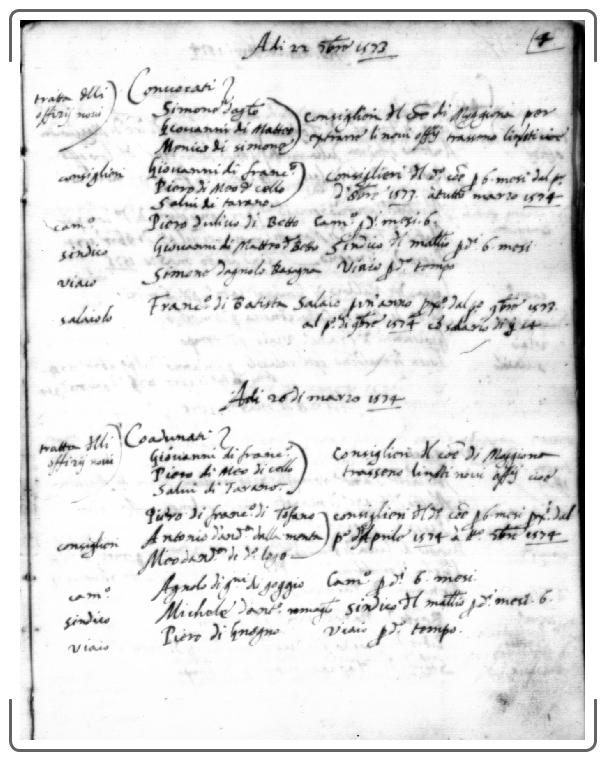 4
Adi 22 7bre 1573
tratta delli offitij novi
Convocati
Simone d'agto
Giovanni di Matteo
Monico di simone
Consiglieri del coe di Muggiona per
extrarre li novi offitij trasseno
consiglieri
Giovanni di franc.o
Piero di Meo d. cello
Salvi di tavano
Consiglieri del d.o coe p 6 mesi dal p.o
d'8bre 1573 à tutto marzo 1574
cam.o
Piero di di Betto Cam.o pd.i mesi 6
sindico
Giovanni di Matteo d. Betto Sindico di pd.i 6. mesi
viaio
Simone d'agnolo Viaio pd.o tempo
salaiolo
Franc.o di Batista Salaio p un anno px.o dal p.o 9bre 1573
al p.o di 9bre 1574 di 14
Adi 26 di marzo 1574
tratta delli offitij novi
Coadunati
Giovanni di franc.o
Piero di Meo di cello
Salvi di Tavano
Consiglieri del coe di Muggiona
trasseno novi offitij cioe
consiglieri
Piero di franc.o di Tofano
Antonio d'and.o della menta
Meo d'and.o di d.o
consiglieri del d.o coe p 6 mesi px.i dal
p.o d'Aprile 1574 à 7bre 1574
cam.o
Agnolo di di goggio Cam.o pd.i 6. mesi
sindico
Michele Sindico del pd.i mesi 6
viaio
Piero di Gnogno viaio pd.o tempo.